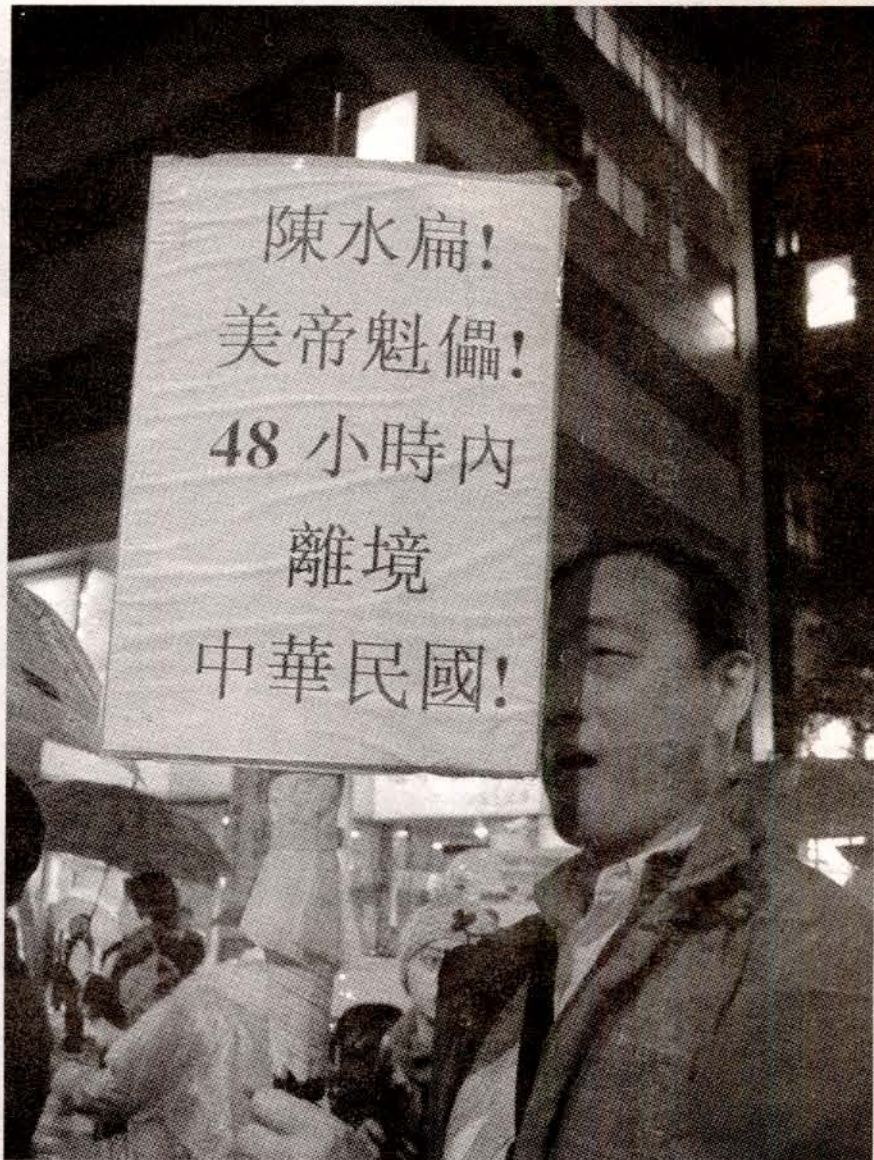 陳水扁!
美帝魁儡!
48 小時內
離境
中華民國!